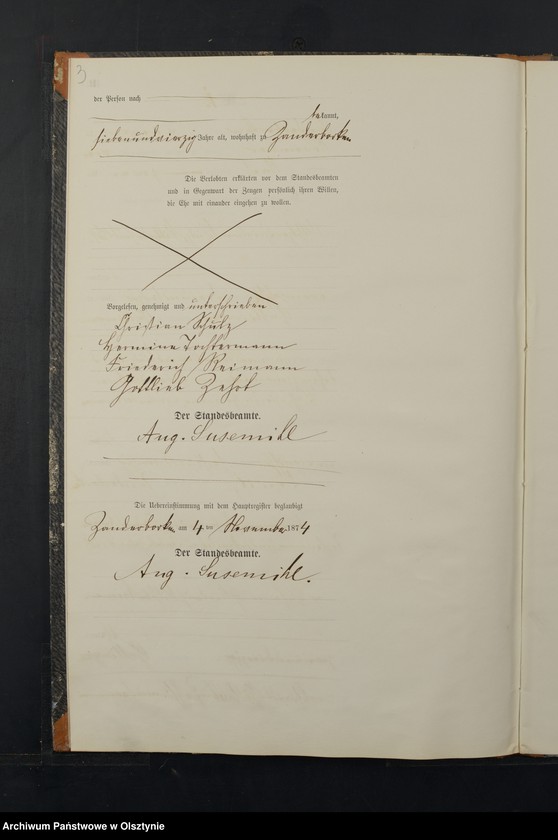 3
der Person nach
bekannt,
siebenundvierzig Jahre alt, wohnhaft zu Zanderborken
Die Verlobten erklärten vor dem Standesbeamten
und in Gegenwart der Zeugen persönlich ihren Willen,
die Ehe mit einander eingehen zu wollen.
Vorgelesen, genehmigt und unterschrieben
Christian Schulz
Hermine Tochtermann
Friederich Reimann
Gottlieb Zehrt
Der Standesbeamte.
Aug. Susemihl
Die Uebereinstimmung mit dem Hauptregister beglaubigt
Zanderborken am 4 ten November 1874
Der Standesbeamte.
Aug. Susemihl.
Archiwum Państwowe w Olsztynie